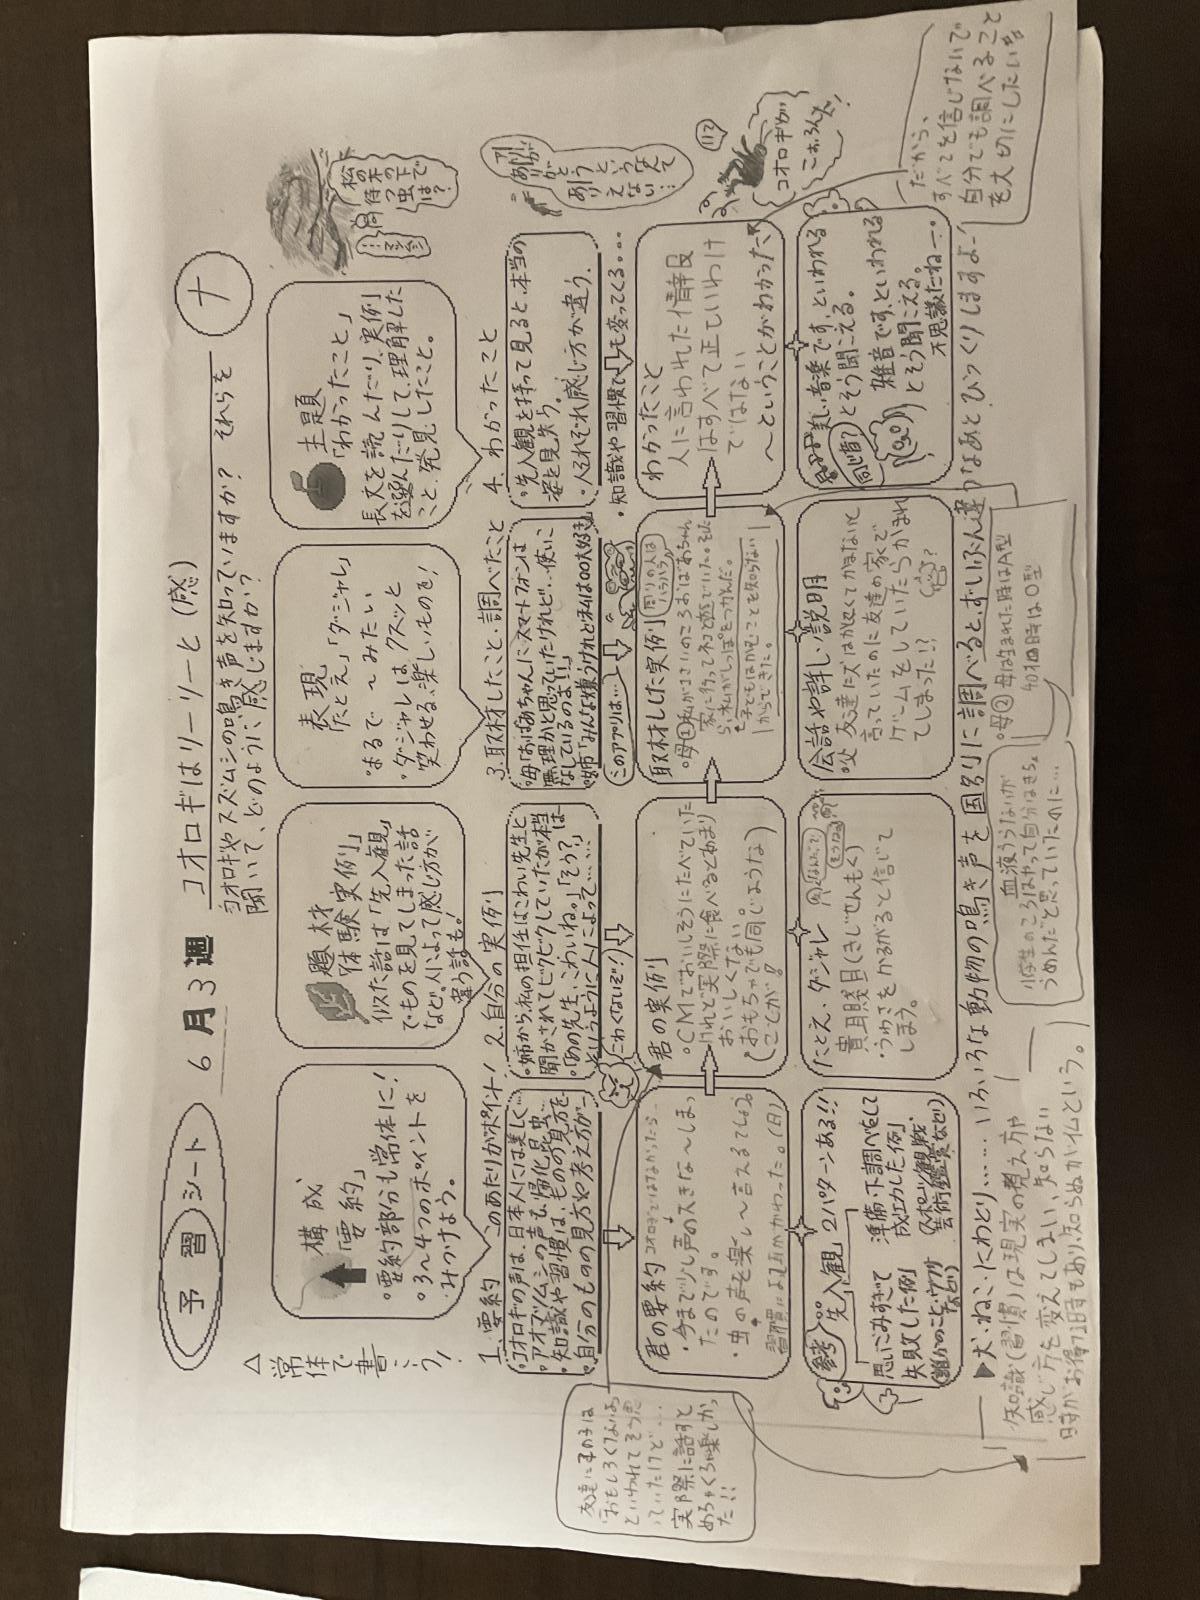 予習シート
6月3週
コオロギはリーリーと（感）
ナ
コオロギやスズムシの鳴き声を知っていますか？それらを
聞いて、どのように感じますか？
△常体で書こう！
構成
「要約」
・要約部分も常体に！
・3～4つのポイントを
みつけよう。
題材
「体験実例」
似た話は「先入観」
でものを見てしまった話
など。人によって感じ方が
違う話も！
表現
「たとえ」「ダジャレ」
・まるで～みたい
・ダジャレは、クスッと
笑わせる、楽しいものを！
主題
「わかったこと」
長文を読んだり、実例
を選んだりして、理解した
こと、発見したこと。
松の木の下で
待つ虫は？
1. 要約 このあたりがポイント！
・コオロギの声は、日本人には美しく…
・アオマツムシの声も、帰化昆虫…
・知識や習慣は、ものの見方を…
・自分のものの見方や考え方が…
2. 自分の実例
・姉から、私の担任はこわい先生と
聞かされてビクビクしていたが本当は
・「あの先生、こわいね。」「そう？」
というように人によって……
こわくないぞ！
3. 取材したこと、調べたこと
・母「おばあちゃんにスマートフォンは
無理かと思っていたけれど…使いこ
なしているのよ！！」
・姉「みんな嫌うけれど私は〇〇大好き」
このアプリは…
4. わかったこと
・先入観を持って見ると、本当の
姿を見失う。
・人それぞれ感じ方が違う。
・知識や習慣でも変ってくる。。。
アリが
ありがとう
というなんて
ありえない…
君の要約 コオロギではなかったら…
・今まで少し声の大きな～しまっ
たのです。
・虫の声を楽し～言えるでしょう
習慣によりちがかわった。（日）
君の実例
・CMでおいしそうにたべていた
けれど実際に食べるとあまり
おいしくない。
（おもちゃでも同じような
ことが!!）
取材した実例
周りの人は
ハラハラ
・母①私が3さいのころおばあちゃん
家に行ってネコと遊でいた。そした
ら、私がしっぽをつかんだ。
└子どもはかむことを知らない
からできた。
わかったこと
人に言われた情報
はすべて正しいわけ
ではない
～ということがわかった
コオロギが
こおろんだ！
参考 先入観 2パターンある!!
思いこみすぎて
失敗した例
準備・下調べをして
成功した例
（スポーツ観戦・
芸術鑑賞など）
たとえ、ダジャレ
貴耳賤目（きじせんもく）
・うわさをかるがると信じて
しまう。
会話や詳しい説明
父 友達に犬はかしこくてかまないと
言っていたのに友達の家で
ゲームをしていたらかまれ
てしまった!?
美しい音楽です、といわれる
とそう聞こえる。
雑音です、といわれる
とそう聞こえる。
不思議だね―。
同じ音？
▶犬・ねこ・にわとり……いろいろな動物の鳴き声を国別に調べると、ずいぶん違うなあとびっくりしますよー！
知識（習慣）は現実の見え方や
感じ方を変えてしまい、知らない
時がお得な時もあり、知らぬが仏という。
友達にその子は
おもしろくないよ
といわれてそう思
っていたけど…
実際に話すと
めちゃくちゃ楽しかっ
た!!
・母②母は生まれた時はA型
40才の時はO型
血液うらないが
小学生のころはやって自分はきちょ
うめんだと思っていたのに…
だから、
すべてを信じないで
自分でも調べること
を大切にしたいな